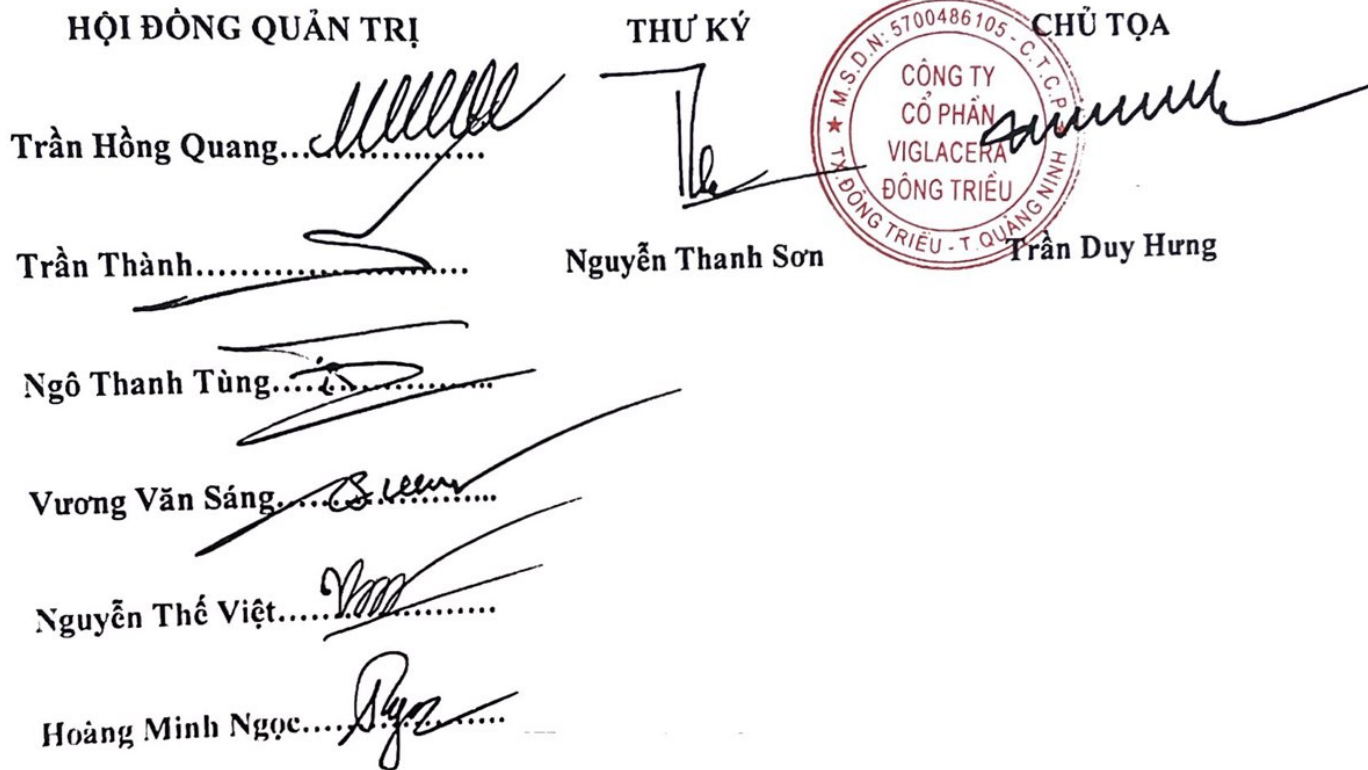 HỘI ĐỒNG QUẢN TRỊ
Trần Hồng Quang....................
Trần Thành..........................
Ngô Thanh Tùng.....................
Vương Văn Sáng.....................
Nguyễn Thế Việt.....................
Hoàng Minh Ngọc....................
THƯ KÝ
Nguyễn Thanh Sơn
CHỦ TỌA
M.S.D.N: 5700486105 - C.T.C.P
CÔNG TY
CỔ PHẦN
VIGLACERA
ĐÔNG TRIỀU
TX.ĐÔNG TRIỀU - T.QUẢNG NINH
Trần Duy Hưng